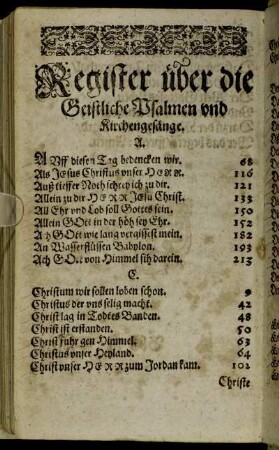 Register über die
Geistliche Psalmen vnd
Kirchengesänge.
A.
AVff diesen Tag bedencken wir. 68
Als JEsus Christus vnser HERR. 116
Auß tieffer Noth schrey ich zu dir. 121
Allein zu dir HERR JEsu Christ. 133
All Ehr vnd Lob soll Gottes sein. 150
Allein GOtt in der höh sey Ehr. 152
Ach GOtt wie lang vergissest mein. 182
An Wasserflüssen Babylon. 193
Ach GOtt von Himmel sih darein. 213
C.
Christum wir sollen loben schon. 9
Christus der vns selig macht. 42
Christ lag in Todtes Banden. 48
Christ ist erstanden. 50
Christ fuhr gen Himmel. 63
Christus vnser Heyland. 64
Christ vnser HERR zum Jordan kam. 102
Christe